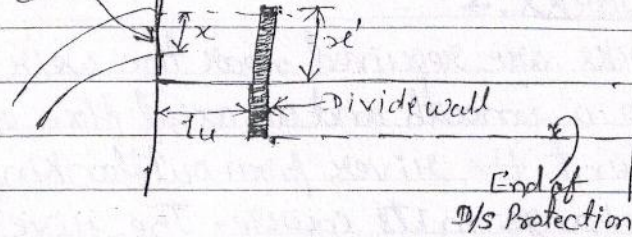 x
x'
Divide wall
tu
End of
D/S Protection